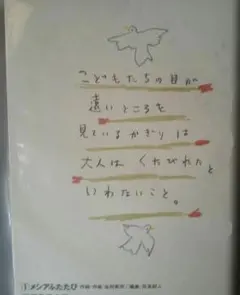 こどもたちの目が
遠いところを
見ているかぎりは
大人は くたびれたと
いわないこと。
メシアルたたび